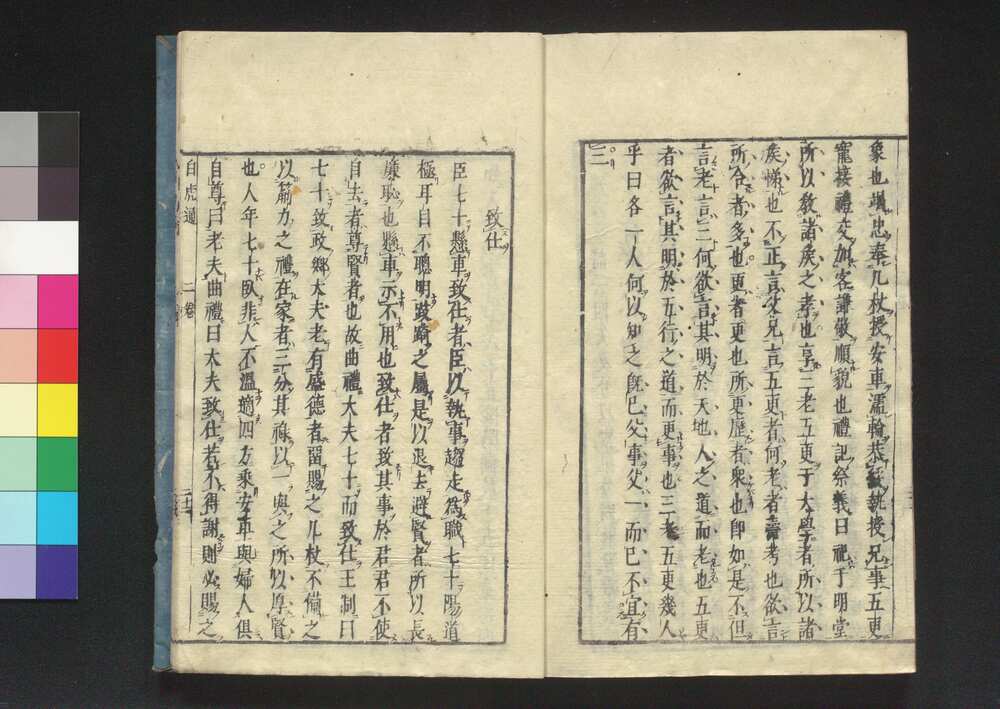 象也竭忠奉几杖授安車濡輪恭綏執授兄事五更
寵接禮交加客謙敬順貌也禮記祭義曰祀于明堂
所以教諸侯之孝也享三老五更于太學者所以諸
侯悌也不正言父兄言五更者何老者壽考也欲言
所令者多也更者更也所更歷者衆也即如是不但
言老言三何欲言其明於天地人之道而老也五更
者欲言其明於五行之道而更事也三老五更幾人
乎曰各一人何以知之既巳父事父一而巳不宜有
三
致仕
臣七十懸車致仕者臣以執事趨走爲職七十陽道
極耳目不聰明跂踦之屬是以退去避賢者所以長
廉恥也懸車示不用也致仕者致其事於君君不使
自去者尊賢者也故曲禮大夫七十而致仕王制曰
七十致政鄉大夫老有盛德者留賜之几杖不備之
以筋力之禮在家者三分其祿以一與之所以厚賢
也人年七十臥非人不溫適四方乘安車與婦人俱
自尊曰老夫曲禮曰大夫致仕若不得謝則必賜之
白虎通 二卷